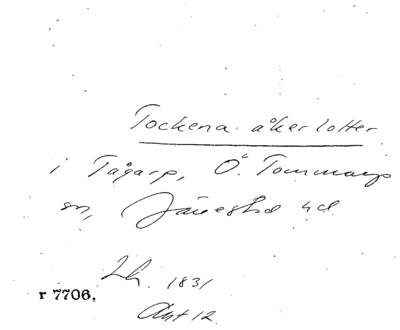 Tockena åkerlotter
i Tågarp, Ö. Tommarp
sn, Järrestad hd
Lh. 1831
r 7706,
Akt 12